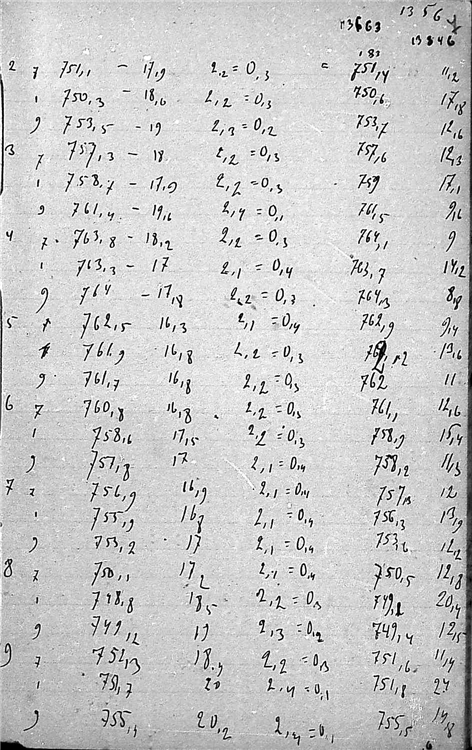 1356
13663
13846
183
2 7 751,1 - 17,9 2,2 = 0,3 = 751,4 11,2
1 750,3 - 18,6 2,2 = 0,3 750,6 17,8
9 753,5 - 19 2,3 = 0,2 753,7 12,6
3 7 757,3 - 18 2,2 = 0,3 757,6 12,3
1 758,7 - 17,9 2,2 = 0,3 759 17,1
9 761,4 - 19,6 2,4 = 0,1 761,5 9,6
4 7 763,8 - 18,2 2,2 = 0,3 764,1 9
1 763,3 - 17 2,1 = 0,4 763,7 14,2
9 764 - 17,8 2,2 = 0,3 764,3 8,8
5 7 762,5 16,3 2,1 = 0,4 762,9 9,4
761,9 16,8 2,2 = 0,3 762,2 13,6
9 761,7 16,8 2,2 = 0,3 762 11
6 7 760,8 16,8 2,2 = 0,3 761,1 12,6
1 758,6 17,5 2,2 = 0,3 758,9 15,4
9 757,8 17 2,1 = 0,4 758,2 11,3
7 7 756,9 16,9 2,1 = 0,4 757,3 12
1 755,9 16,8 2,1 = 0,4 756,3 13,9
9 753,2 17 2,1 = 0,4 753,6 12,2
8 7 750,1 17,2 2,1 = 0,4 750,5 12,8
1 748,8 18,5 2,2 = 0,3 749,1 20,4
9 749,2 19 2,3 = 0,2 749,4 12,5
9 7 751,3 18,4 2,2 = 0,3 751,6 11,4
1 751,7 20 2,4 = 0,1 751,8 24
9 755,4 20,2 2,4 = 0,1 755,5 14,8